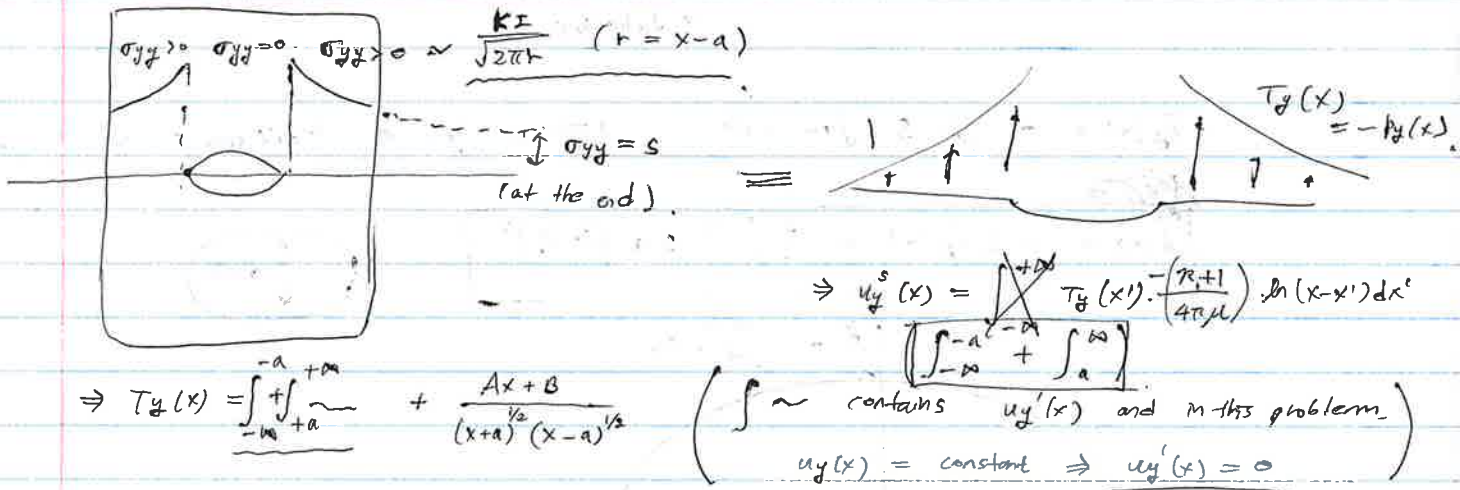 σyy>0 σyy=0. σyy>0 ~ KI/√(2πr) (r = x-a)
σyy = s
(at the end).
≡
Ty(x) = -Py(x).
⇒ uy^s(x) = ∫_{-∞}^{+∞} Ty(x')·-((κ+1)/(4πμ))·ln(x-x')dx'
(∫_{-∞}^{-a} + ∫_{a}^{∞})
⇒ Ty(x) = ∫_{-∞}^{-a} + ∫_{+a}^{+∞} ~ + (Ax + B)/((x+a)^{1/2} (x-a)^{1/2}) (∫ ~ contains uy'(x) and in this problem
uy(x) = constant ⇒ uy'(x) = 0)